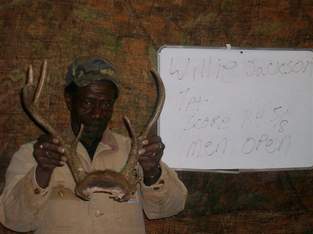 Willie Jackson
7pt.
SCORE 74 5/8
MEN OPEN